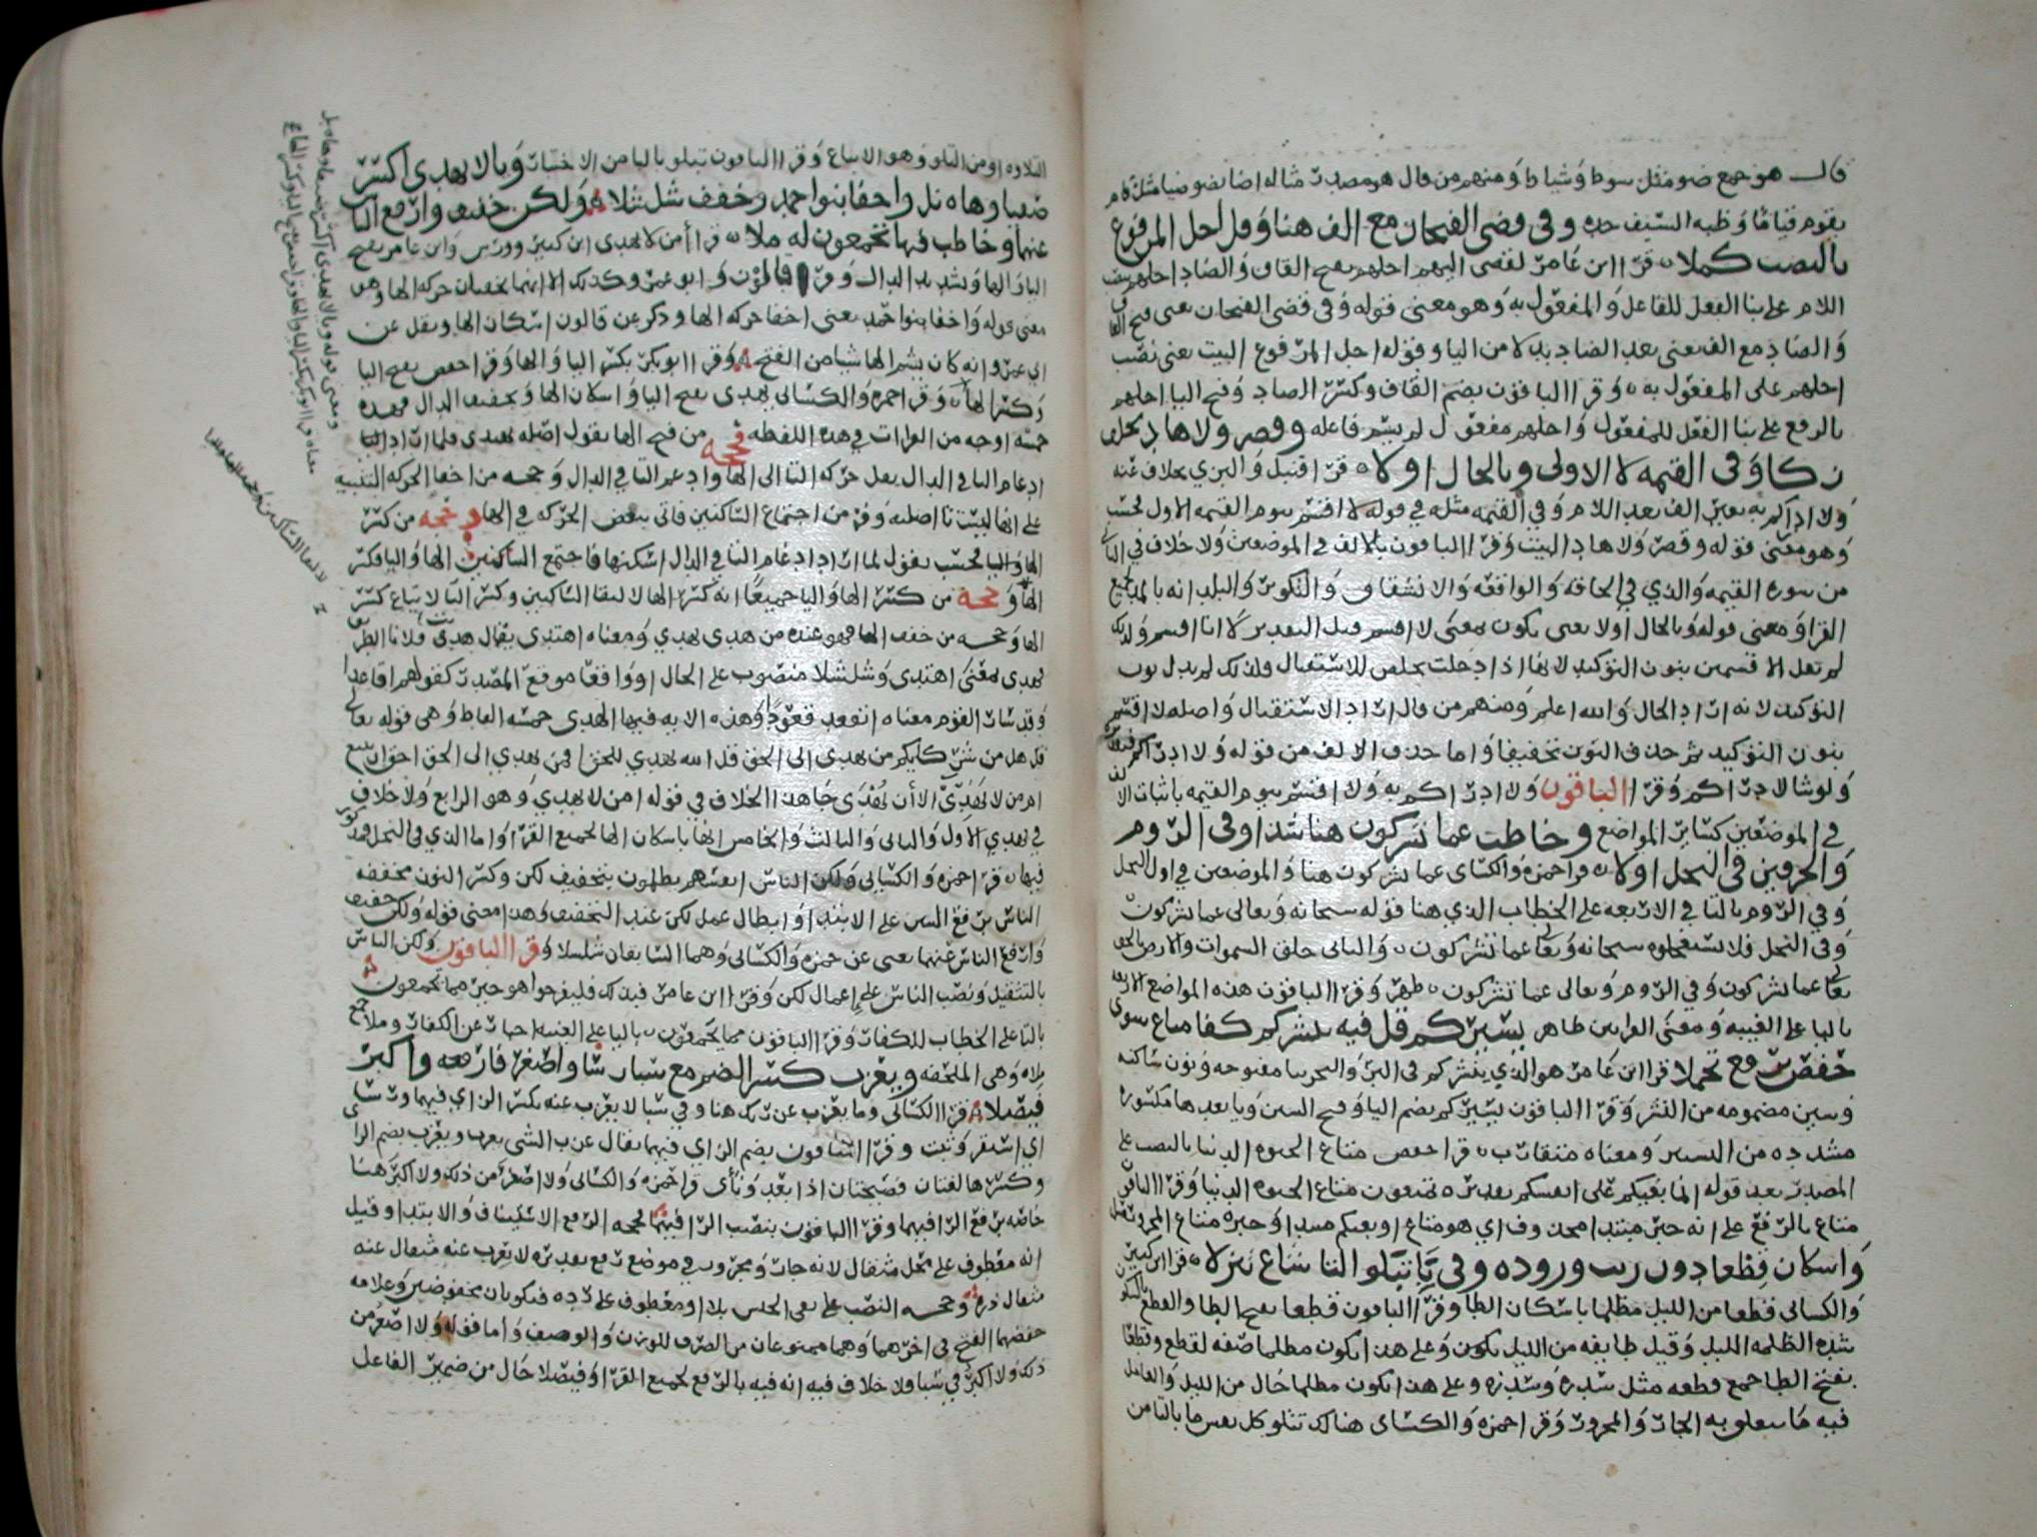 قال هو جمع ضو مثل سوط وسياط ومنهم من قال هو مصدر مثاله اضا يضو ضيا مثل قام
يقوم قياما وظبه السيف حده وفي قضى الفتحان مع الف هنا وقل اجل المرفوع
بالنصب كملا قرا ابن عامر لقضى اليهم اجلهم بفتح القاف والضاد اجلهم بنصب
اللام على بنا الفعل للفاعل والمفعول به وهو معنى قوله وفي قضى الفتحان يعني فتح القاف
والضاد مع الف يعني بعد الضاد بدلا من اليا وقوله اجل المرفوع البيت يعني نصب
اجلهم على المفعول به وقرا الباقون بضم القاف وكسر الضاد وفتح اليا اجلهم
بالرفع على بنا الفعل للمفعول واجلهم مفعول لم يسم فاعله وقصر ولا هاد بخلف
زكا وفي القيمه لا الاولى وبالحال اولا قرا قنبل والبزي بخلاف عنه
ولا ادراكم به بغير الف بعد اللام وفي القيمه مثله في قوله لا اقسم بيوم القيمه الاول فحسب
وهو معنى قوله وقصر ولا هاد البيت وقرا الباقون بالالف في الموضعين ولا خلاف في الثاني
من سوره القيمه والذي في الحاقه والواقعه والانشقاق والتكوير والبلد انه بالمد لجميع
القرا ومعنى قوله وبالحال اولا يعني يكون بمعنى لاقسم قيل التقدير لانا اقسم ولذلك
لم تقل لاقسمن بنون التوكيد لانها اذا دخلت تخلص للاستقبال فلذلك لم يدخل نون
التوكيد لانه اراد الحال والله اعلم ومنهم من قال اراد الاستقبال واصله لاقسمن
بنون التوكيد ثم حذف النون تخفيفا واما حذف الالف من قوله ولا ادراكم
ولو شا لادراكم وقرا الباقون ولا ادراكم به ولا اقسم بيوم القيمه باثبات الالف
في الموضعين كساير المواضع وخاطب عما تشركون هنا شذا وفي الروم
والحرفين في النحل اولا قرا حمزه والكساي عما تشركون هنا والموضعين في اول النحل
وفي الروم بالتا في الاربعه على الخطاب الذي هنا قوله سبحانه وتعالى عما تشركون
وفي النحل فلا تستعجلوه سبحانه وتعالى عما تشركون والثاني خلق السموات والارض بالحق
تعالى عما تشركون وفي الروم وتعالى عما تشركون ظهر وقرا الباقون هذه المواضع الاربعه
باليا على الغيبه ومعنى القراتين ظاهر يسيركم قل فيه ينشركم كفا متاع سوى
حفص برفع تحملا قرا ابن عامر هو الذي ينشركم في البر والبحر بيا مفتوحه ونون ساكنه
وشين مضمومه من النشر وقرا الباقون يسيركم بضم اليا وفتح السين ويا بعدها مكسوره
مشدده من السير ومعناه متقارب قرا حفص متاع الحيوه الدنيا بالنصب على
المصدر بعد قوله انما بغيكم على انفسكم تقديره تمتعون متاع الحيوه الدنيا وقرا الباقون
متاع بالرفع على انه خبر مبتدا محذوف اي هو متاع او بغيكم مبتدا وخبره متاع
واسكان قطعا دون ريب وروده وفي با تبلو التا شاع تنزلا قرا ابن كثير
والكسائي قطعا من الليل مظلما باسكان الطا وقرا الباقون قطعا بفتح الطا والقطع
شده الظلمه الليل وقيل طايفه من الليل يكون وعلى هذا يكون مظلما صفه لقطع وقطعا
بفتح الطا جمع قطعه مثل سدره وسدر وعلى هذا يكون مظلما حال من الليل والعامل
فيه ما تعلق به الجار والمجرور وقرا حمزه والكساي هنالك تتلو كل نفس بالتا من
التلاوه او من التلو وهو الاتباع وقرا الباقون تبلو بالبا من الاختبار ويا لا يهدي اكسر
صفيا وهاه نل واخفا بنو احمد وخفف شلشلا ولكن خفيف وارفع الناس
عنهما وخاطب فيها تجمعون له ملا قرا امن لا يهدي ابن كثير وورش وابن عامر بفتح
اليا والها وتشديد الدال وقرا قالون وابو عمرو كذلك الا انهما يخفيان حركه الها وهو
معنى قوله واخفا بنو حمد يعني اخفا حركه الها وذكر عن قالون اسكان الها ونقل عن
ابي عمرو انه كان يشم الها شيا من الفتح وقرا ابو بكر بكسر اليا والها وقرا حفص بفتح اليا
وكسر الها وقرا حمزه والكسائي يهدي بفتح اليا واسكان الها وتخفيف الدال فهذه
خمسه اوجه من القرات في هذه اللفظه فحجه من فتح الها يقول اصله يهتدي فلما اراد
ادغام التا في الدال نقل حركه التا الى الها وادغم التا في الدال وحجه من اخفا الحركه التنبيه
على انها ليست باصليه وفر من اجتماع الساكنين فاتى ببعض الحركه في الها وحجه من كسر
الها واليا فحسب يقول لما اراد ادغام التا في الدال اسكنها فاجتمع الساكنين الها واليا فكسر
الها وحجه من كسر الها واليا جميعا انه كسر الها لالتقا الساكنين وكسر اليا لاتباع كسر
الها وحجه من خفف الها فهو عنده من هدى يهدي ومعناه اهتدى يقال هدى فلانا الطريق
فهدى بمعنى اهتدى وشلشلا منصوب على الحال او واقعا موقع المصدر كقولهم اقاعدا
وقد سار القوم معناه اتقعد قعودا وهذه الايه فيها الهدى خمسه الفاظ وهي قوله تعالى
قل هل من شركايكم من يهدي الى الحق قل الله يهدي للحق افمن يهدي الى الحق احق ان يتبع
ام من لا يهدي الا ان يهدى جا هذا الخلاف في قوله امن لا يهدي وهو الرابع ولا خلاف
في يهدي الاول والثاني والثالث والخامس انها باسكان الها لجميع القرا واما الذي في النحل
فيها قرا حمزه والكسائي ولكن الناس انفسهم يظلمون بتخفيف لكن وكسر النون مخففه
الناس برفع السين على الابتدا وابطال عمل لكن عند التخفيف وهذا معنى قوله ولكن خفيف
وارفع الناس عنهما يعني عن حمزه والكسائي وهما السابقان شلشلا وقرا الباقون ولكن الناس
بالتثقيل ونصب الناس على اعمال لكن وقرا ابن عامر فبذلك فليفرحوا هو خير مما تجمعون
بالتا على الخطاب للكفار وقرا الباقون مما يجمعون باليا على الغيبه اخبار عن الكفار وملا جمع
ملاه وهي الملحفه ويعزب كسر الضم مع سبا رسا واصغر فارفعه واكبر
فيصلا قرا الكسائي وما يعزب عن ربك هنا وفي سبا لا يعزب عنه بكسر الزاي فيهما ورسا
اي استقر وثبت وقرا الباقون بضم الزاي فيهما يقال عزب الشي يعزب ويعزب بضم الزاي
وكسرها لغتان فصيحتان اذا بعد ونأى قرا حمزه والكسائي ولا اصغر من ذلك ولا اكبر هنا
خاصه برفع الرا فيهما وقرا الباقون بنصب الرا فيهما فحجه الرفع الاستيناف والابتدا وقيل
انه معطوف على محل مثقال لانه جار ومجرور في موضع رفع تقديره لا يعزب عنه مثقال عنه
مثقال ذره وحجه النصب على نفي الجنس بلا او معطوف على ذره فيكونان مخفوضين وعلامه
خفضهما الفتح في اخرهما وهما ممنوعان من الصرف للوزن والوصف واما قوله ولا اصغر من
ذلك ولا اكبر في سبا فلا خلاف فيه انه فيه بالرفع لجميع القرا وفيصلا حال من ضمير الفاعل
ومعنى قوله ويا لا يهدي اكسر صفيا وهاه نل
لالتقا الساكنين